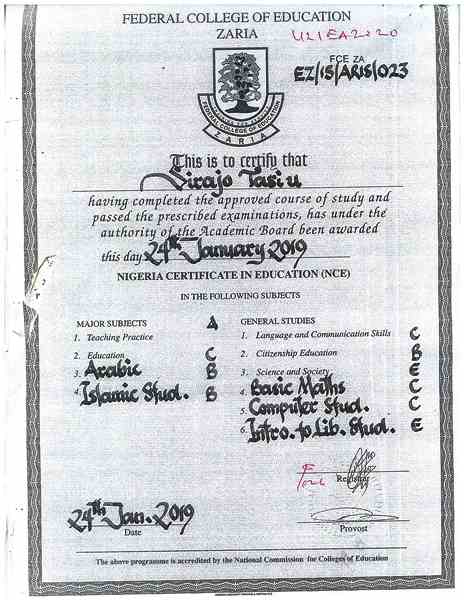 FEDERAL COLLEGE OF EDUCATION
ZARIA
U21EA2020
FCE ZA
EZ/15/ARIS/023
FEDERAL COLLEGE OF EDUCATION
ZARIA
This is to certify that
Sirajo Tasiu
having completed the approved course of study and
passed the prescribed examinations, has under the
authority of the Academic Board been awarded
this day 24th January 2019
NIGERIA CERTIFICATE IN EDUCATION (NCE)
IN THE FOLLOWING SUBJECTS
MAJOR SUBJECTS
1. Teaching Practice A
2. Education C
3. Arabic B
4. Islamic Stud. B
GENERAL STUDIES
1. Language and Communication Skills C
2. Citizenship Education B
3. Science and Society E
4. Basic Maths C
5. Computer Stud. C
6. Intro. to Lib. Stud. E
For
Registrar
24th Jan. 2019
Date
Provost
The above programme is accredited by the National Commission for Colleges of Education